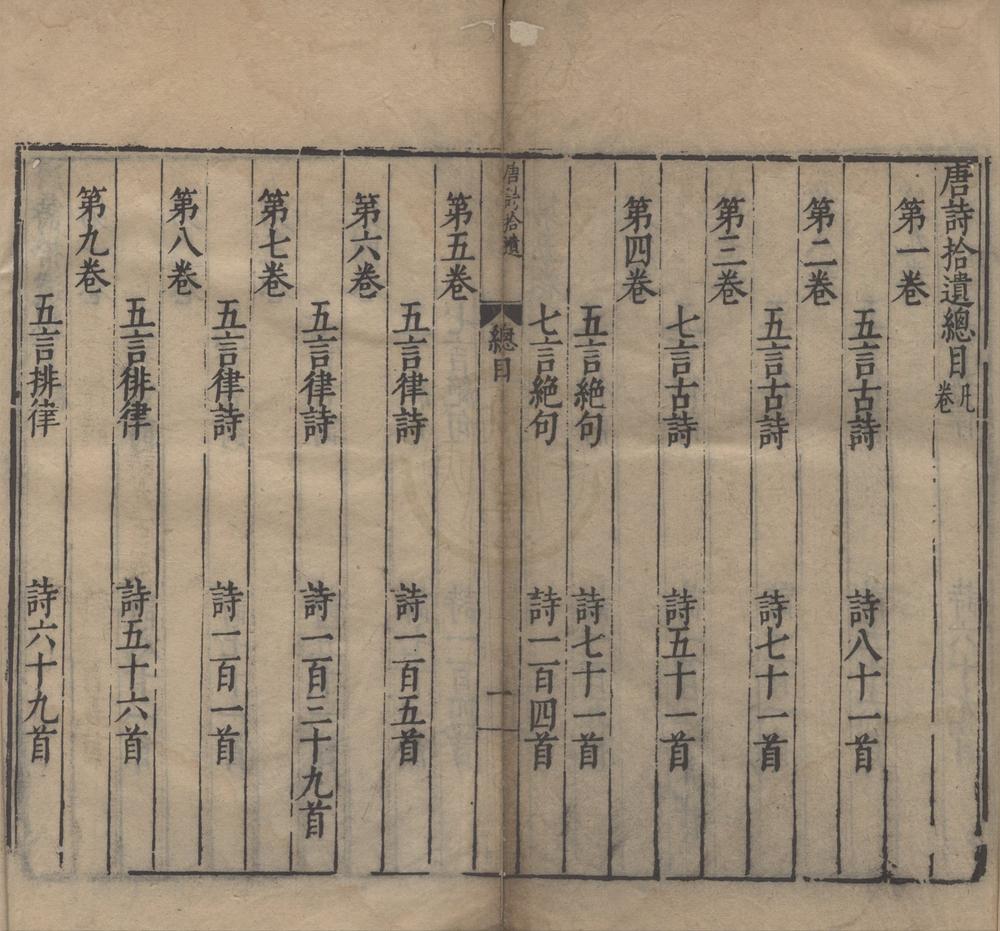 唐詩拾遺總目凡卷
第一卷
五言古詩 詩八十一首
第二卷
五言古詩 詩七十一首
第三卷
七言古詩 詩五十一首
第四卷
五言絕句 詩七十一首
七言絕句 詩一百四首
唐詩拾遺 總目 一
第五卷
五言律詩 詩一百五首
第六卷
五言律詩 詩一百三十九首
第七卷
五言律詩 詩一百一首
第八卷
五言徘律 詩五十六首
第九卷
五言排律 詩六十九首